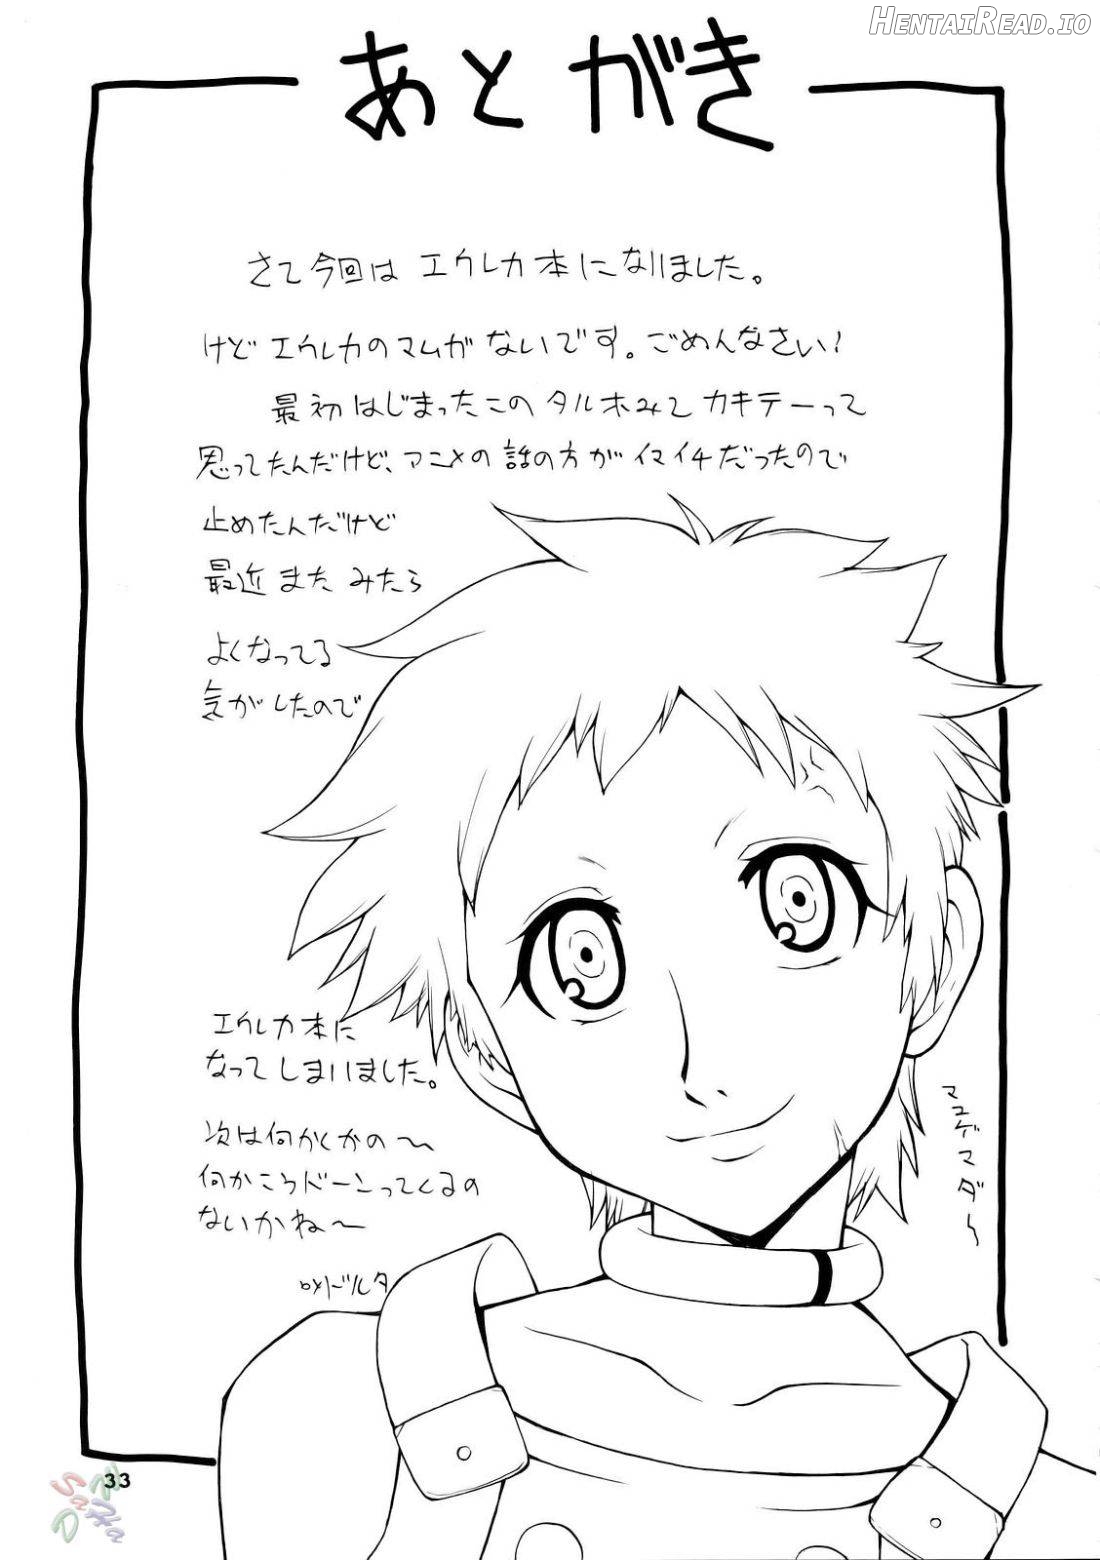 HentaiRead.io
あとがき
さて今回は エウレカ本になりました。
けど エウレカのママがないです。ごめんなさい!
最初はじまったこの タルホみて カキテーって
思ってたんだけど、アニメの話の方が イマイチだったので
止めたんだけど
最近 また みたら
よくなってる
気がしたので
エウレカ本に
なってしまいました。
次は何かくかの〜
何かこうドーンってくるの
ないかね〜
マユゲマダ〜
33